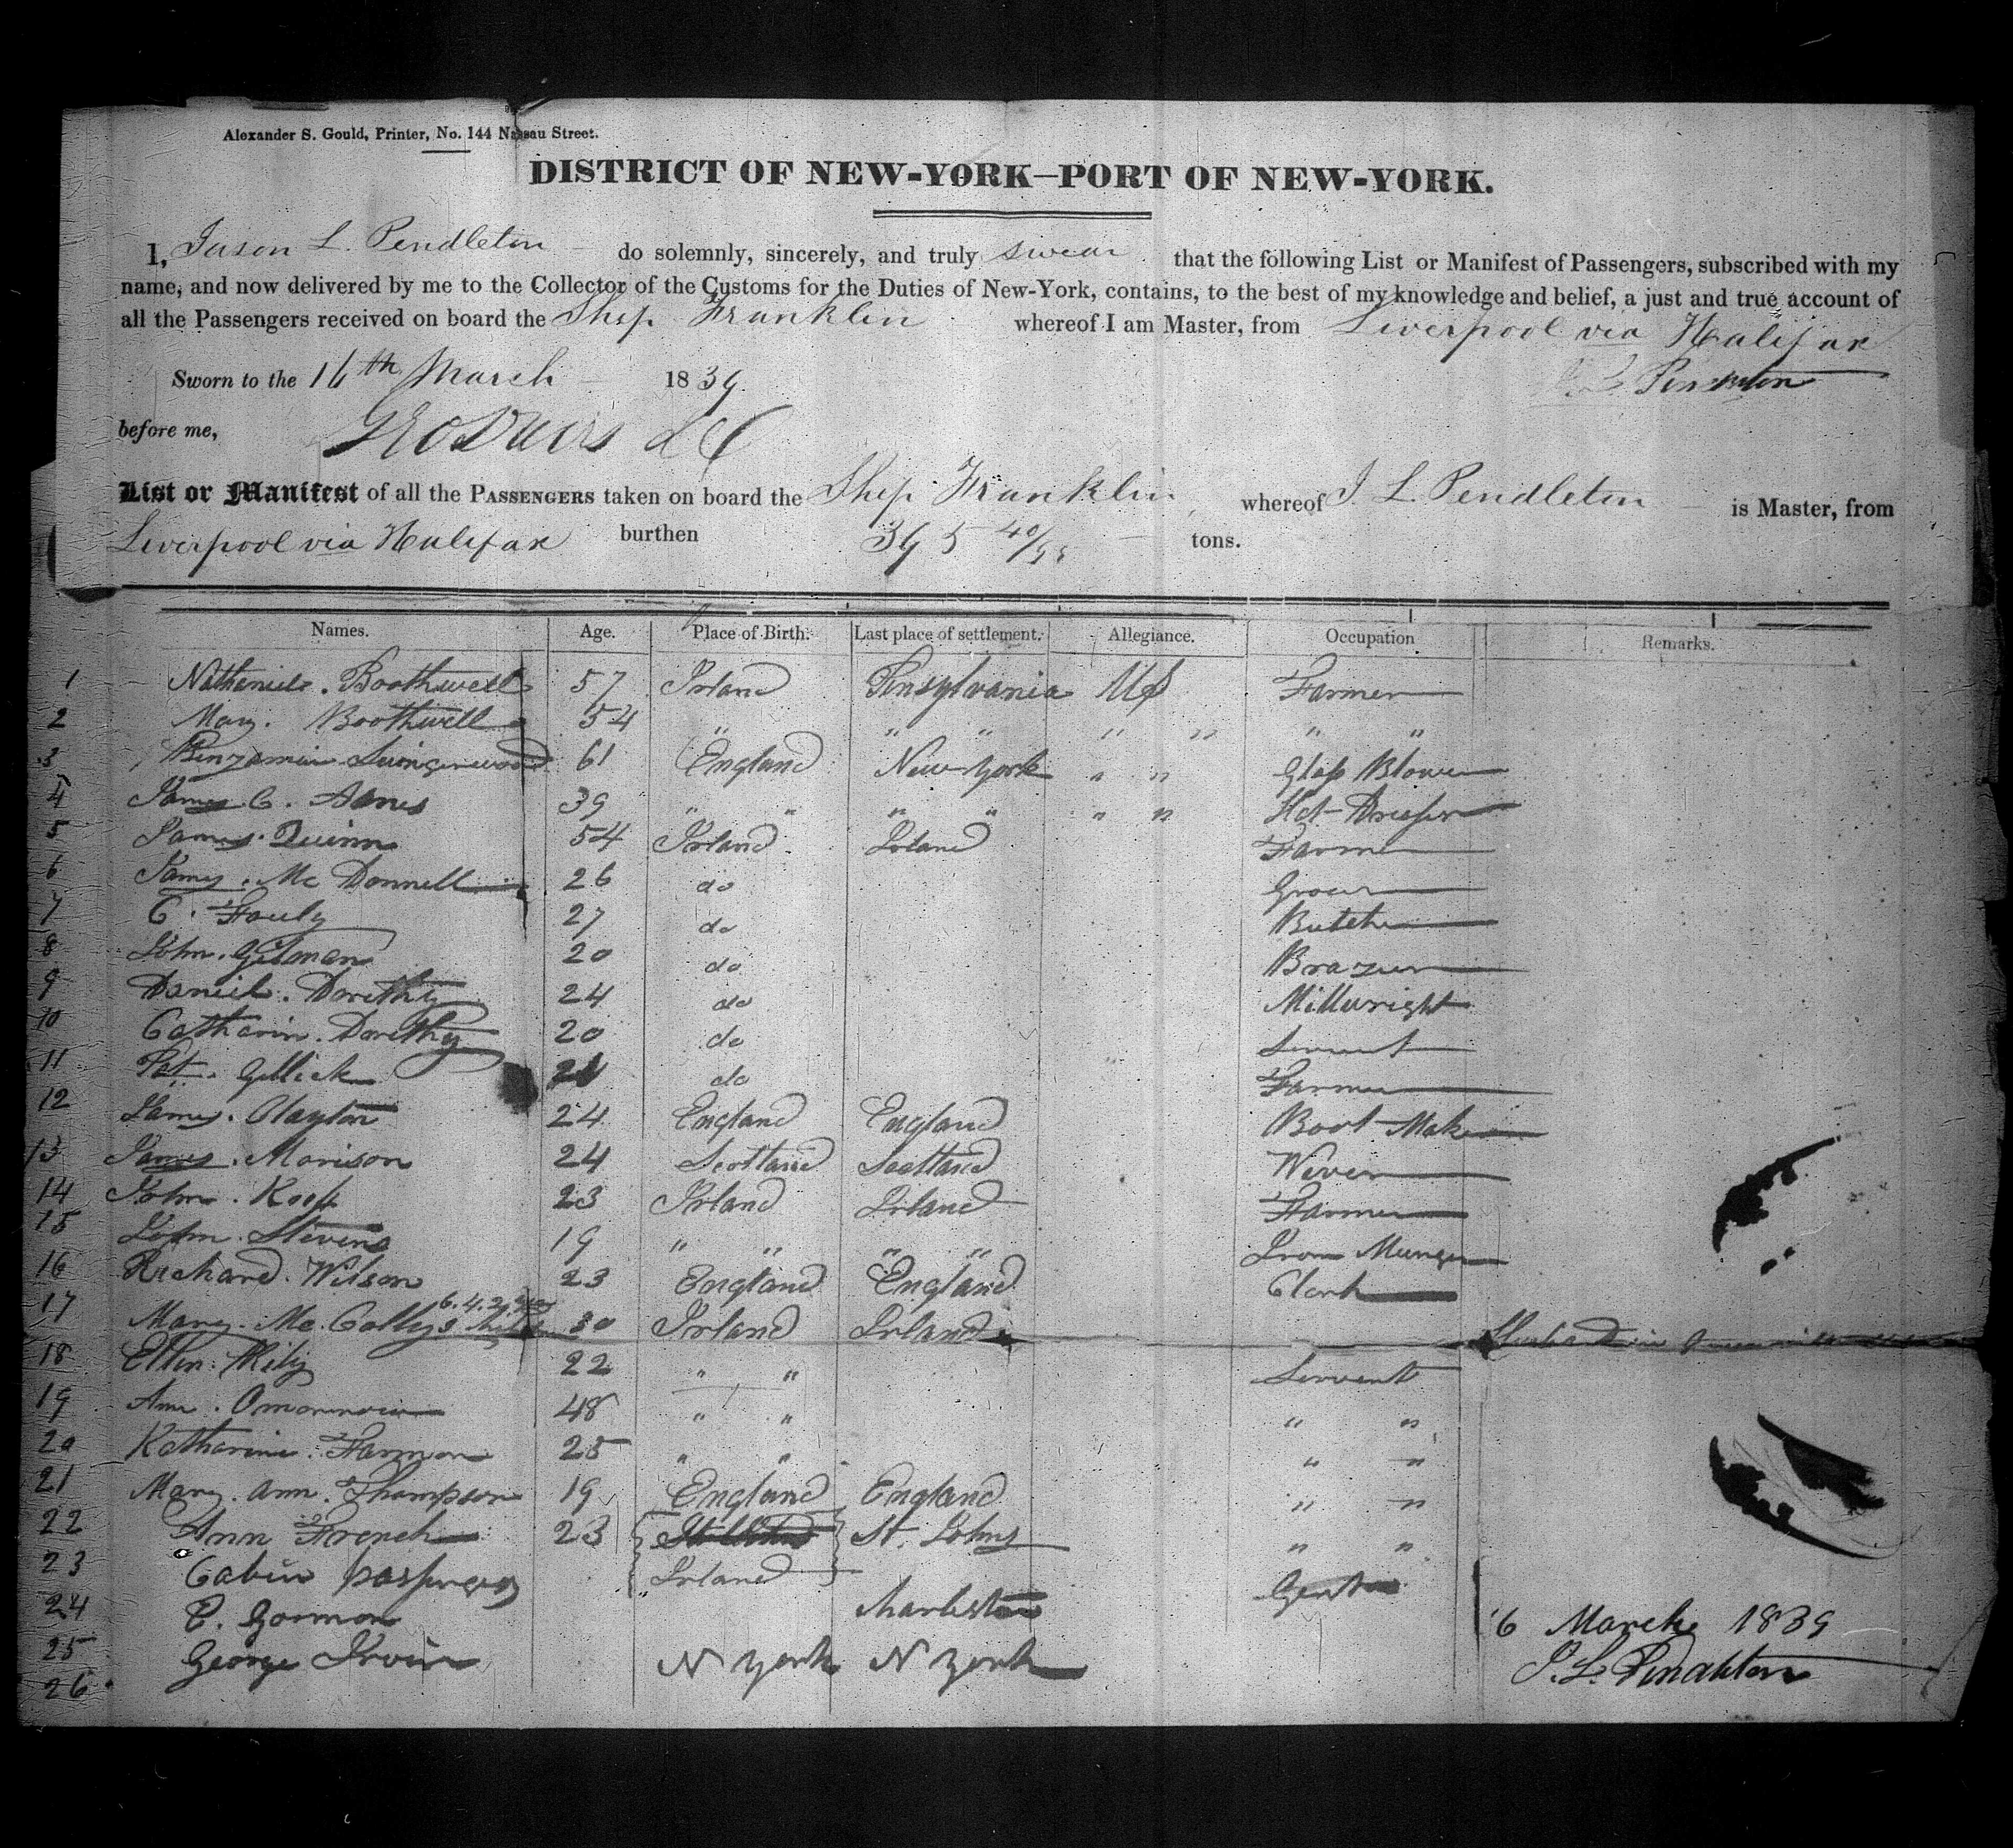 Alexander S. Gould, Printer, No. 144 Nassau Street.
DISTRICT OF NEW-YORK—PORT OF NEW-YORK.
I, Jason L. Pendleton do solemnly, sincerely, and truly swear that the following List or Manifest of Passengers, subscribed with my
name, and now delivered by me to the Collector of the Customs for the Duties of New-York, contains, to the best of my knowledge and belief, a just and true account of
all the Passengers received on board the Ship Franklin whereof I am Master, from Liverpool via Halifax
Sworn to the 16th March 1839
before me,
List or Manifest of all the PASSENGERS taken on board the Ship Franklin whereof J. L. Pendleton is Master, from
Liverpool via Halifax burthen 395 tons.
Names. Age. Place of Birth. Last place of settlement. Allegiance. Occupation Remarks.
1 Boothwell 57 Irland Pensylvania US Farmer
2 Mary. Boothwell 54 " " " " " " "
3 Benjamin 61 England New York " " Glass Blower
4 James C. 39 " " " " " "
5 James. Quinn 54 Irland Irland Farmer
6 James. Mc Donnell 26 do Grocer
7 C. 27 do Butcher
8 John. Gilman 20 do Brazier
9 Daniel. Dorethy 24 do Millwright
10 Catharin. Dorethy 20 do Servant
11 Pat. Gillick do Farmer
12 James. Clayton 24 England England Boot Maker
13 James. Morison 24 Scotland Scotland Wever
14 John. 23 Irland Irland Farmer
15 John. Stevens 19 " " " " Iron Munger
16 Richard. Wilson 23 England England Clerk
17 Mary. Mc. 30 Irland Irland Husband in
18 Ellen. 22 " " Servent
19 Ann. 48 " " " "
20 Katharine. Harmon 25 " " " "
21 Mary. Ann. Thompson 19 England England " "
22 Ann French 23 St. Johns " "
23 Cabin passengers Irland
24 Gormon Charleston
25 George Irvin N York N York
26
16 March 1839
J. L. Pendleton